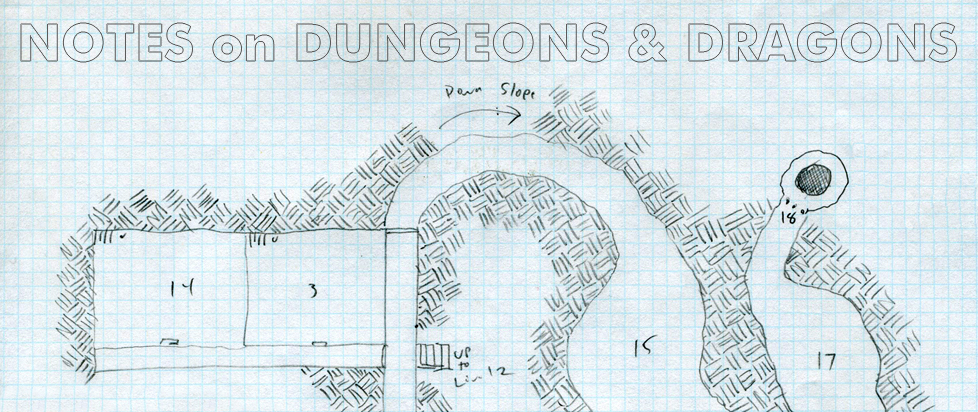 NOTES on DUNGEONS & DRAGONS
Down Slope
18
14
3
15
17
UP
to